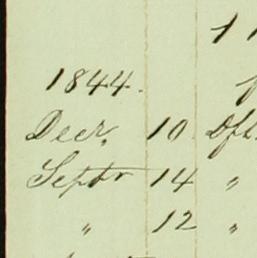 1844.
Decr. 10 Dft.
Septr 14 "
" 12 "